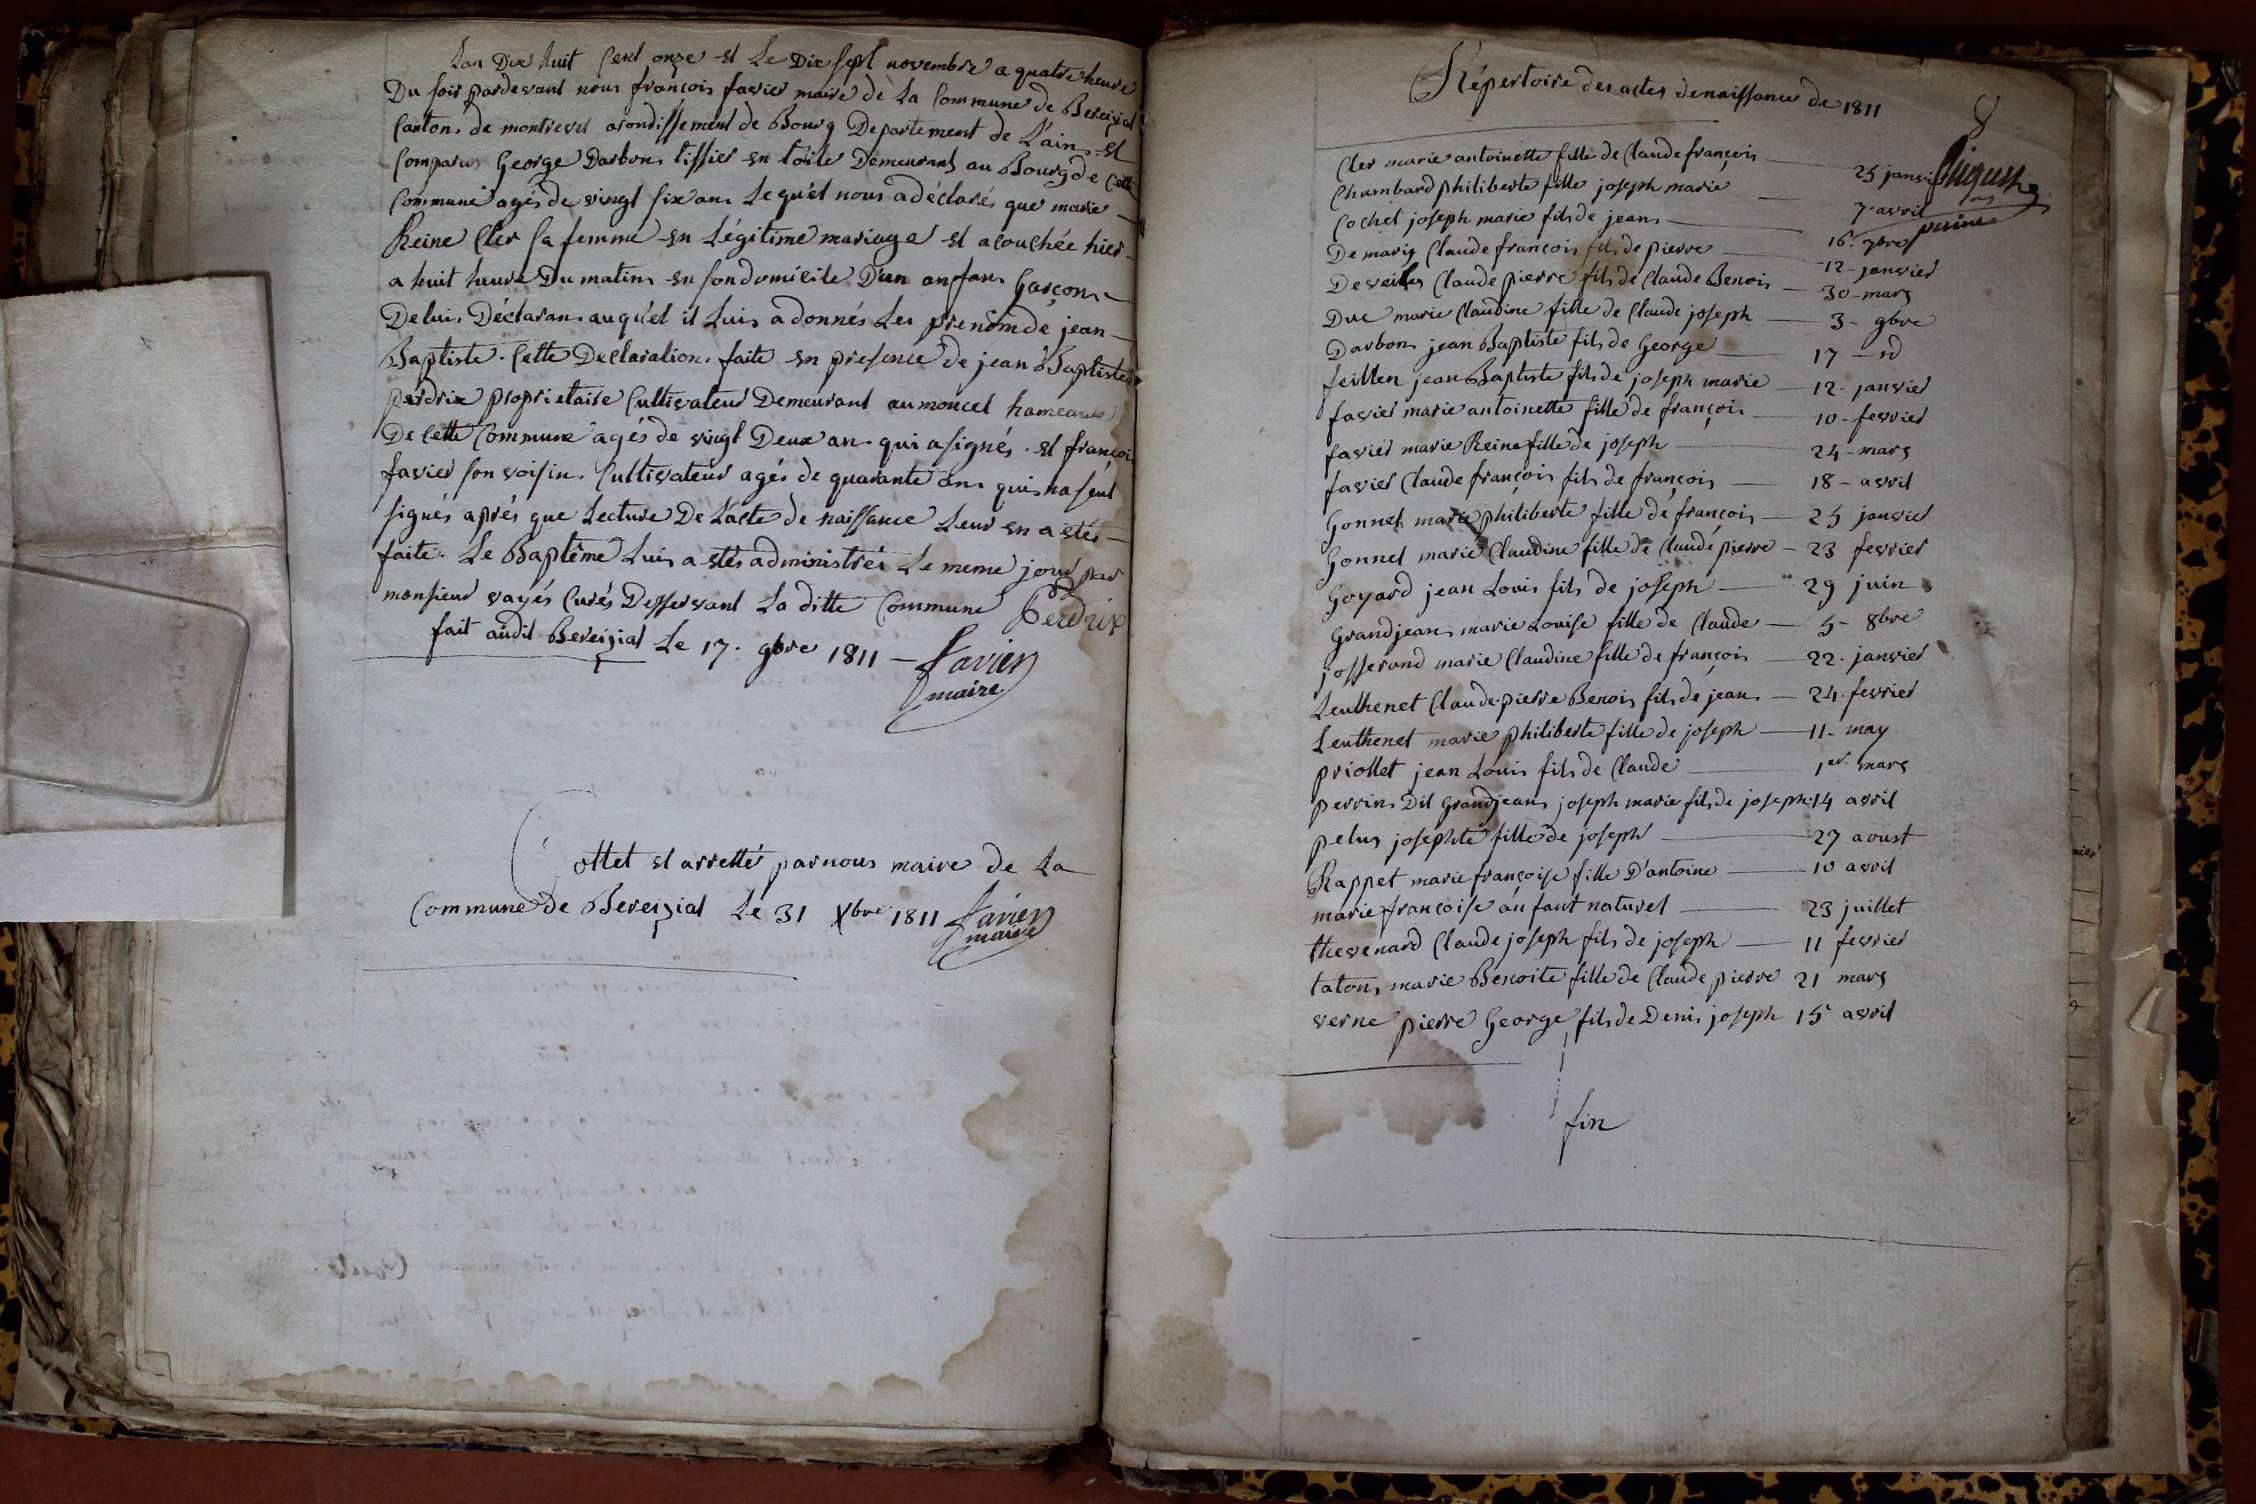 Lan Dix huit Cent onze et Le Dix sept novembre a quatre heure
Du soir pardevant nous françois favier maire de La Commune de Bereizial
Canton de montrevel arondissement de Bourg Departement de L'ain et
Comparus George Darbon tissier en toile Demeurant au Bourg de Cette
Commune agés de vingt six an Lequél nous a déclarés que marie
Reine Cler sa femme en Légitime mariage et acouchée hier
a huit heure Du matin en son domicile D'un anfan Garçon
De luis Déclaran auquél il Luis a donnés Les prenom de jean
Baptiste. Cette Declaration faite en presence de jean Baptiste
perdrix proprietaire Cultivateur Demeurant au moncel hameaux
De Cette Commune agés de vingt Deux an qui a signés. et françois
favier son voisin Cultivateur agés de quarante an qui na seut
signés aprés que Lecture De L'acte de naissance Leur en a etés
faite. Le Baptême Luis a etés administrés Le meme jour par
monsieur vayés Curés Desservant La ditte Commune Perdrix
fait audit Bereizial Le 17. 9bre 1811 Favier
maire
Cottet et arrettés par nous maire de La
Commune de Bereizial Le 31 Xbre 1811 Favier
maire
Répertoire des actes denaissance de 1811
8
Cler marie antoinette fille de Claude françois 25 janvier
Chambard philiberte fille joseph marie 7 avril
Cochet joseph marie fils de jean 16. 7bre
De marig Claude françois fils de pierre 12 janvier
Desveiles Claude pierre fils de Claude Benois 30 mars
Duc marie Claudine fille de Claude joseph 3 9bre
Darbon jean Baptiste fils de George 17 id
feillen jean Baptiste fils de joseph marie 12 janvier
favier marie antoinette fille de françois 10 fevrier
favier marie Reine fille de joseph 24 mars
favier Claude françois fils de françois 18 avril
Gonnet marie philiberte fille de françois 25 janvier
Gonnet marie Claudine fille de Claude pierre 23 fevrier
Goyard jean Louis fils de joseph 29 juin
Grandjean marie Louise fille de Claude 5 8bre
josserand marie Claudine fille de françois 22. janvier
Leuthenet Claude pierre Benois fils de jean 24. fevrier
Leuthenet marie philiberte fille de joseph 11 may
priollet jean Louis fils de Claude 1er mars
perrin Dit Grandjean joseph marie fils de joseph 14 avril
pelus josephte fille de joseph 27 aoust
Rappet marie françoise fille D'antoine 10 avril
marie françoise anfant naturel 23 juillet
thevenard Claude joseph fils de joseph 11 fevrier
taton marie Benoite fille de Claude pierre 21 mars
verne pierre George fils de Denis joseph 15 avril
fin